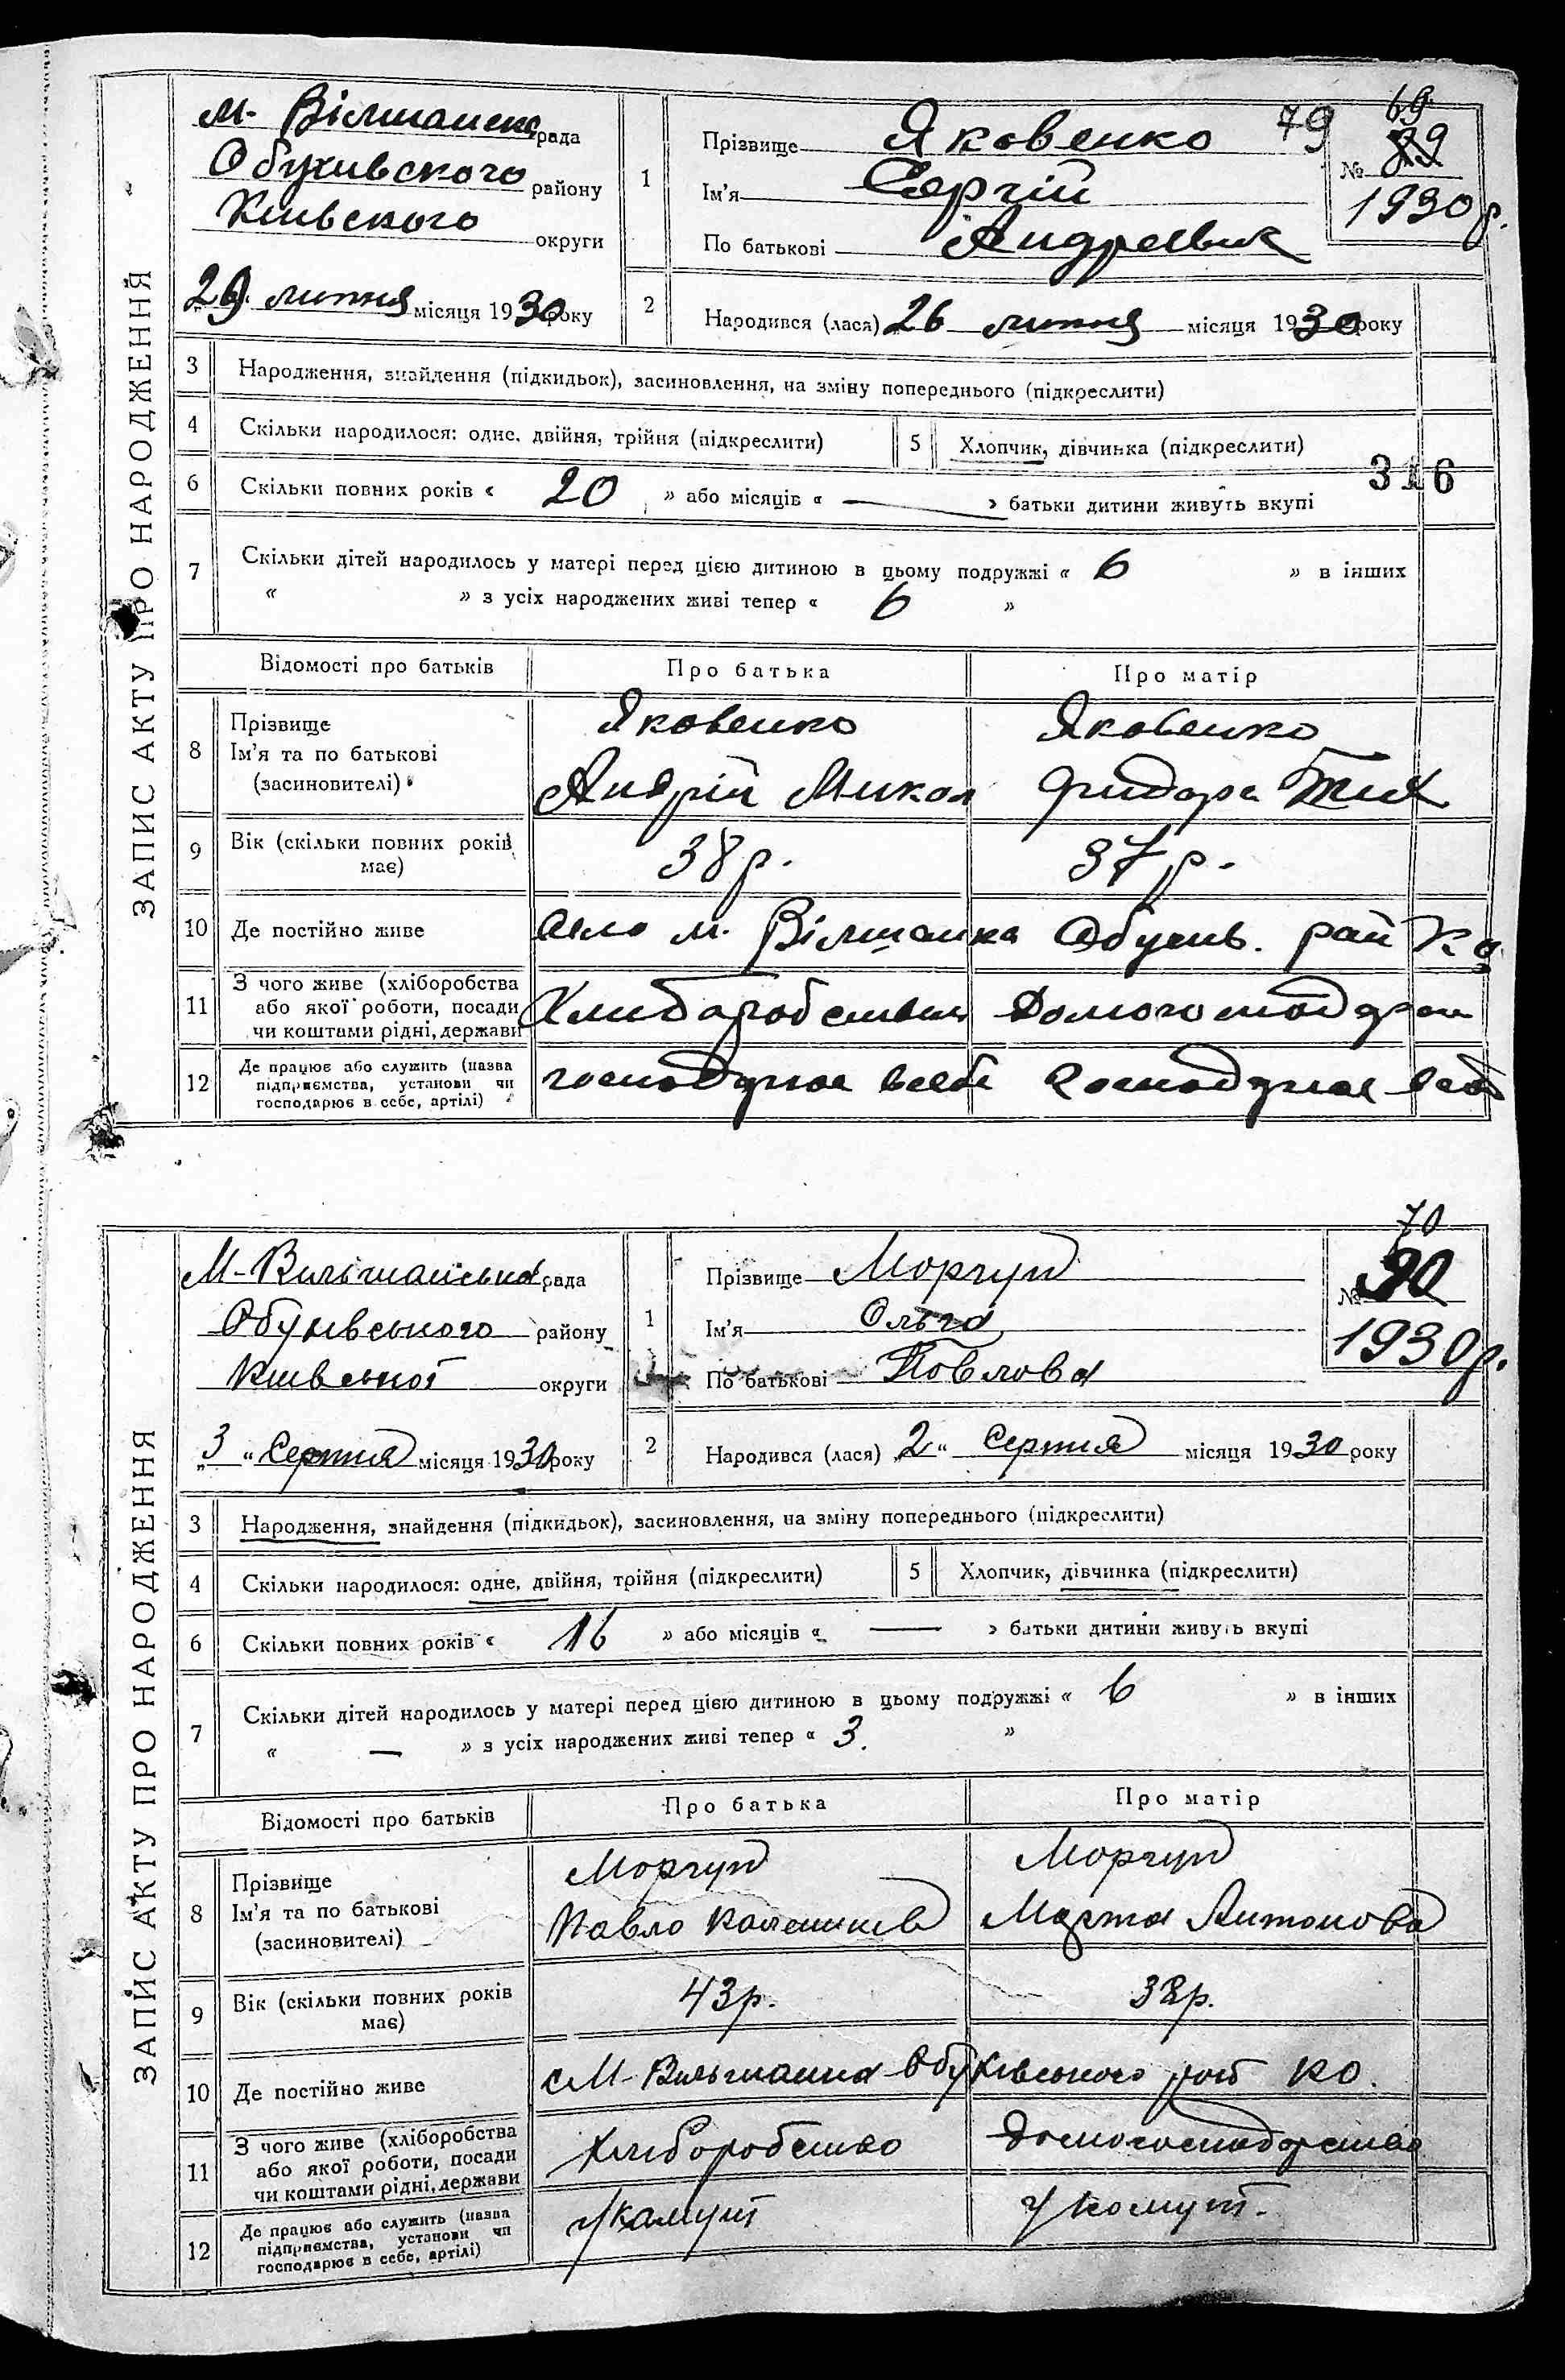 ЗАПИС АКТУ ПРО НАРОДЖЕННЯ
м. Вілшанська рада
Обухивского району
Київского округи
29 липня місяця 1930 року
1
Прізвище Яковенко 79
Ім'я Сергій
По батькові Андреевич
69
№ 89
1930 р.
2
Народився (лася) 26 липня місяця 1930 року
3 Народження, знайдення (підкидьок), засиновлення, на зміну попереднього (підкреслити)
4 Скільки народилося: одне, двійня, трійня (підкреслити) 5 Хлопчик, дівчинка (підкреслити)
316
6 Скільки повних років « 20 » або місяців « — » батьки дитини живуть вкупі
7 Скільки дітей народилось у матері перед цією дитиною в цьому подружжі « 6 » в інших
« » з усіх народжених живі тепер « 6 »
Відомості про батьків Про батька Про матір
8 Прізвище Яковенко Яковенко
Ім'я та по батькові
(засиновителі) Андрій Микол
9 Вік (скільки повних років
має) 38 р. 37 р.
10 Де постійно живе село м. Вілшанка Обухив. рай К о
11 З чого живе (хліборобства
або якої роботи, посади
чи коштами рідні, держави
12 Де працює або служить (назва
підприємства, установи чи
господарює в себе, артілі) господурює в себе господурює в себе
ЗАПИС АКТУ ПРО НАРОДЖЕННЯ
М-Вильшанська рада
Обухівського району
Київської округи
3 " Серпня місяця 1930 року
1
Прізвище Моргун
Ім'я Ольга
По батькові Повлова
70
№ 90
1930 р.
2
Народився (лася) 2 " Серпня місяця 1930 року
3 Народження, знайдення (підкидьок), засиновлення, на зміну попереднього (підкреслити)
4 Скільки народилося: одне, двійня, трійня (підкреслити) 5 Хлопчик, дівчинка (підкреслити)
6 Скільки повних років « 16 » або місяців « — » батьки дитини живуть вкупі
7 Скільки дітей народилось у матері перед цією дитиною в цьому подружжі « 6 » в інших
« — » з усіх народжених живі тепер « 3. »
Відомості про батьків Про батька Про матір
8 Прізвище Моргун Моргун
Ім'я та по батькові
(засиновителі) Павло Марта Антонова
9 Вік (скільки повних років
має) 43 р. 38 р.
10 Де постійно живе с М-Вильшанка Обухівського рай КО.
11 З чого живе (хліборобства
або якої роботи, посади
чи коштами рідні, держави Хліборобство Домогосподарство
12 Де працює або служить (назва
підприємства, установи чи
господарює в себе, артілі) у камуні у комуні.